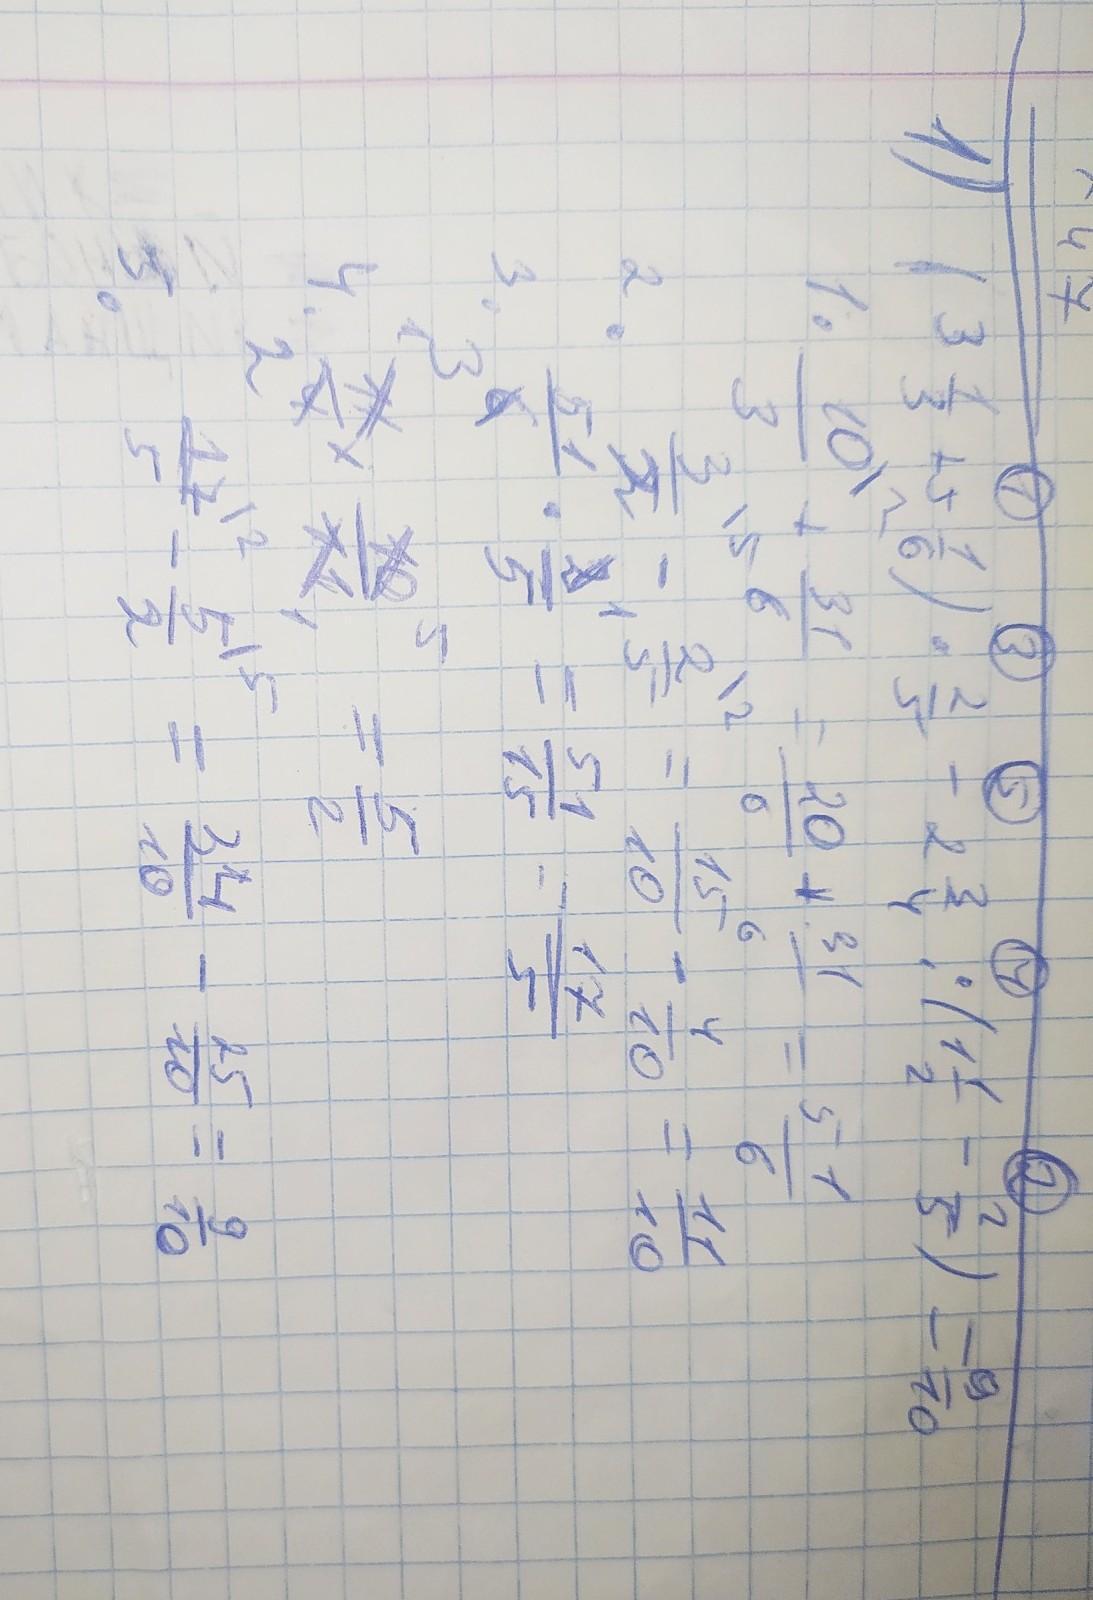 × 47
① ③ ⑤ ④ ②
1) (3 1/3 + 5 1/6) · 2/5 - 2 3/4 : (1 1/2 - 2/5) = 9/10
1. 10/3 \2 + 31/6 = 20/6 + 31/6 = 51/6
2. 3/2 \5 - 2/5 \2 = 15/10 - 4/10 = 11/10
3. 51/6 3 · 2/5 1 = 51/15 = 17/5
4. 1 11/4 2 · 10/11 5 1 = 5/2
5. 17/5 \2 - 5/2 \5 = 34/10 - 25/10 = 9/10